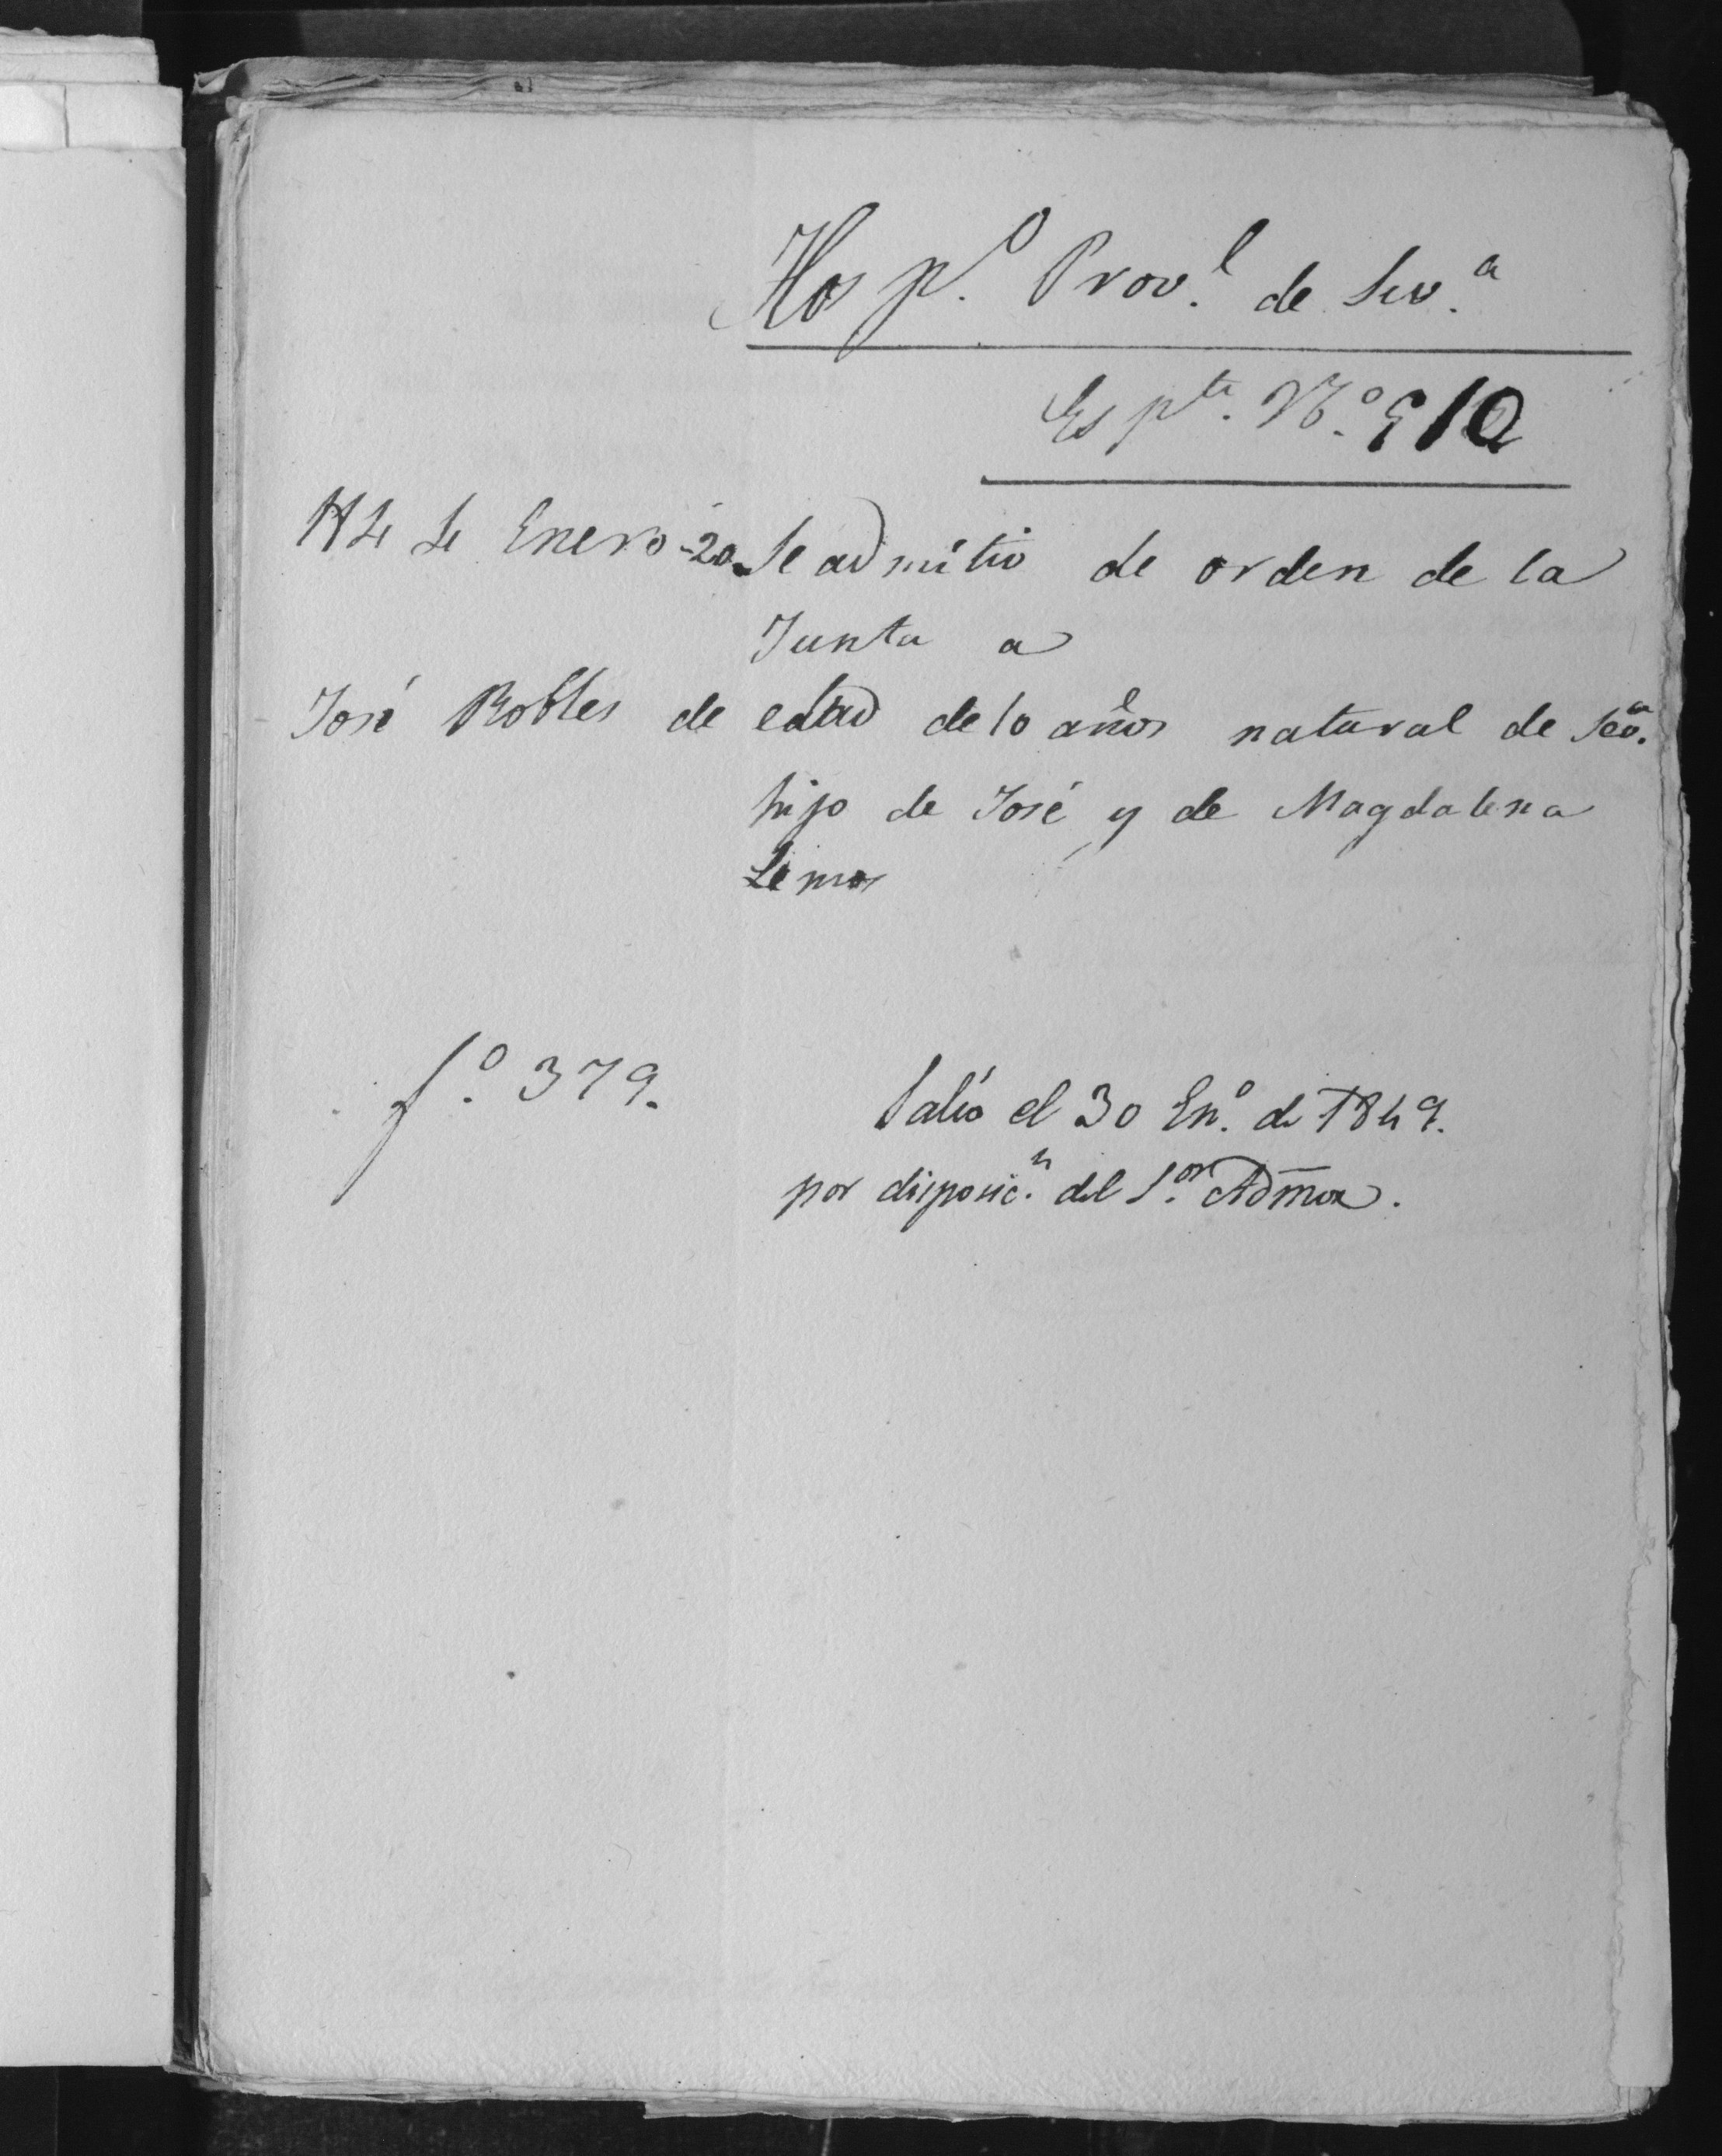 Hosp.º Prov.l de Sev.ª
Espte. Nº. 910
1844 Enero -20. Se admitio de orden de la
Junta a
José Robles de edad de 10 años natural de Seva.
hijo de José y de Magdalena
Lemos
fº. 379.
Salió el 30 En.º de 1849.
por disposic.n del S.or Admor.